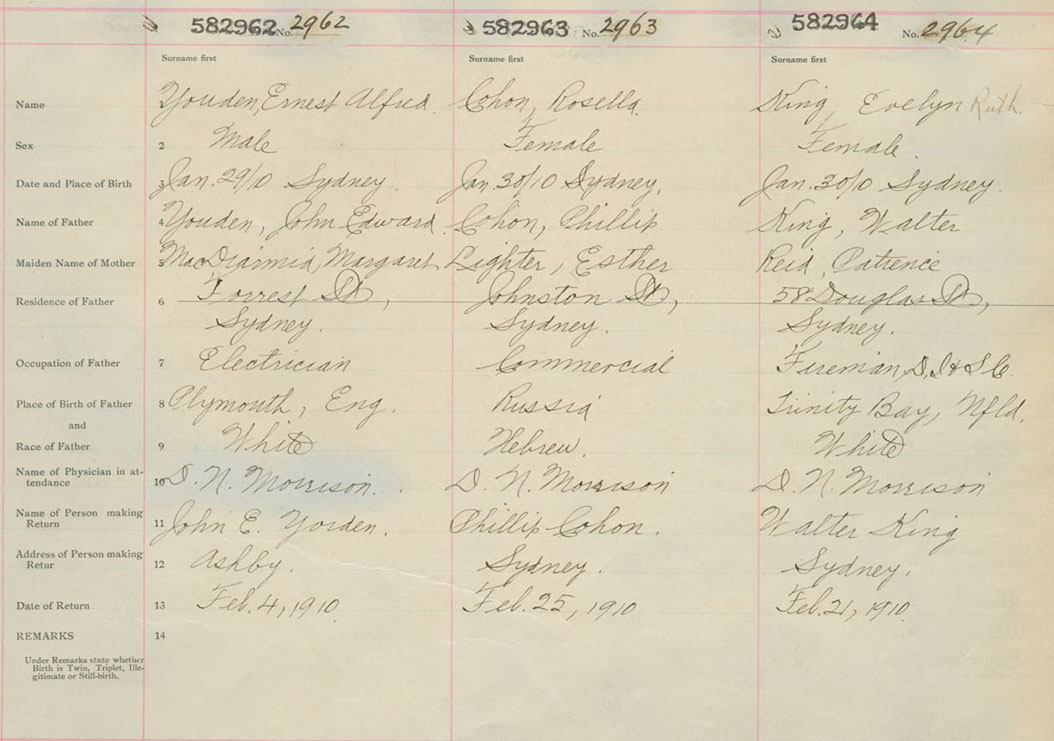 582962 No. 2962 582963 No. 2963 582964 No. 2964
Surname first Surname first Surname first
Name 1 Youden, Ernest Alfred. Cohon, Rosella. King, Evelyn Ruth.
Sex 2 Male Female Female.
Date and Place of Birth 3 Jan. 29/10 Sydney. Jan. 30/10 Sydney. Jan. 30/10 Sydney.
Name of Father 4 Youden, John Edward. Cohon, Phillip King, Walter
Maiden Name of Mother 5 MacDiarmid, Margaret Lighter, Esther Reid, Patience
Residence of Father 6 Forrest St, Johnston St, 58 Douglas St,
Sydney. Sydney. Sydney.
Occupation of Father 7 Electrician Commercial Fireman, D. I & S Co.
Place of Birth of Father 8 Plymouth, Eng. Russia Trinity Bay, Nfld.
and
Race of Father 9 White Hebrew. White
Name of Physician in at-
tendance 10 D. N. Morrison. D. N. Morrison D. N. Morrison
Name of Person making
Return 11 John E. Yorden. Phillip Cohon. Walter King
Address of Person making
Retur 12 Ashby. Sydney. Sydney.
Date of Return 13 Feb. 4, 1910. Feb. 25, 1910 Feb. 21, 1910.
REMARKS 14
Under Remarks state whether
Birth is Twin, Triplet, Ille-
gitimate or Still-birth.